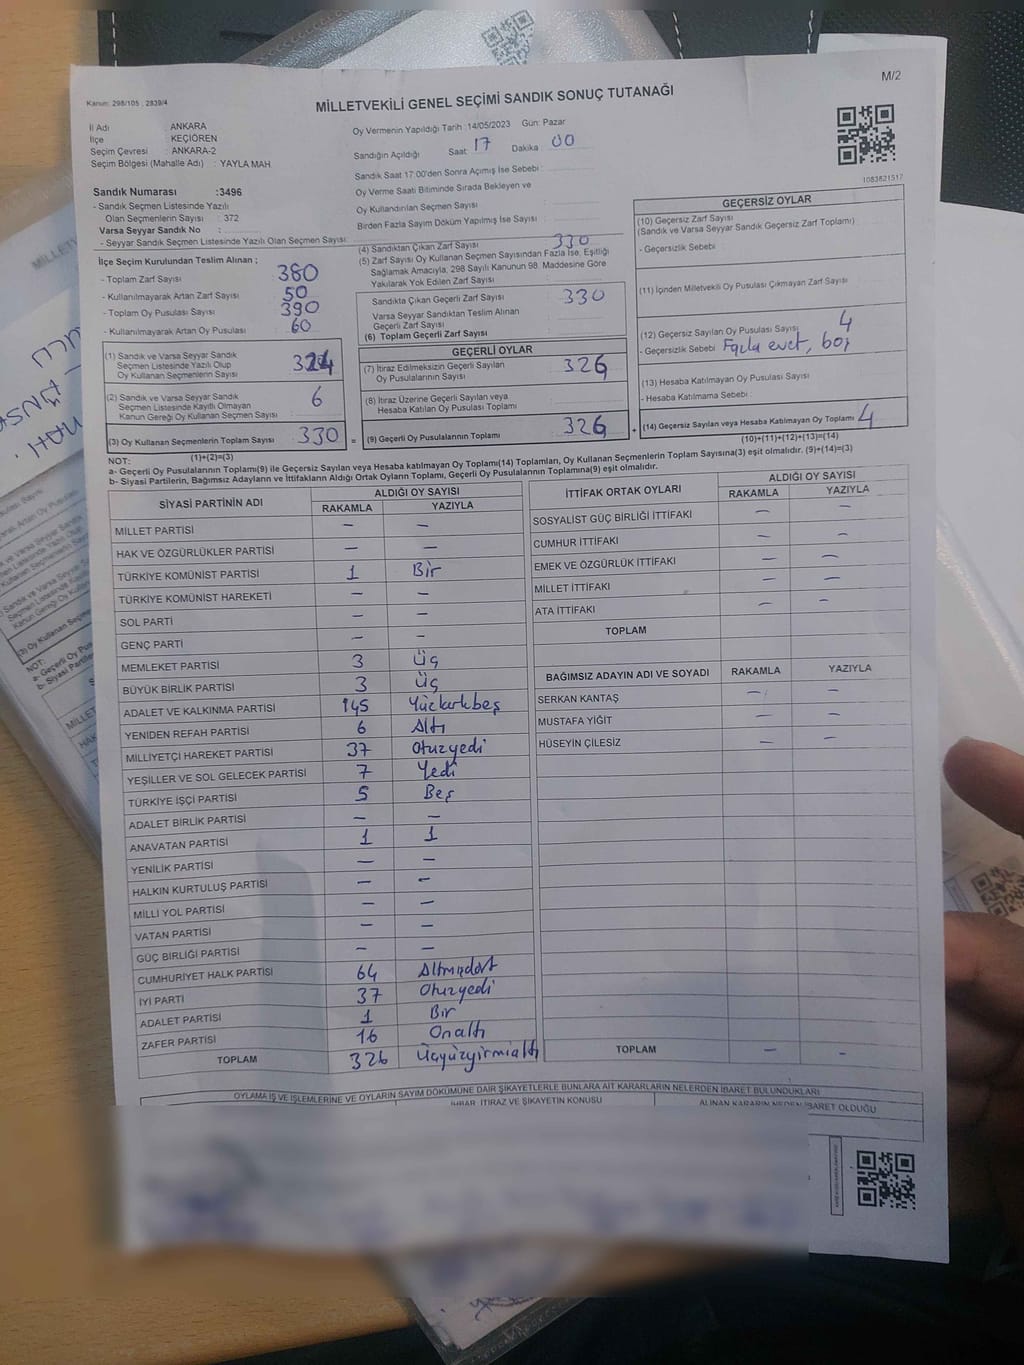 M/2
Kanun: 298/105 , 2839/4
MİLLETVEKİLİ GENEL SEÇİMİ SANDIK SONUÇ TUTANAĞI
İl Adı : ANKARA
İlçe : KEÇİÖREN
Seçim Çevresi : ANKARA-2
Seçim Bölgesi (Mahalle Adı) : YAYLA MAH
Sandık Numarası :3496
- Sandık Seçmen Listesinde Yazılı
Olan Seçmenlerin Sayısı : 372
Varsa Seyyar Sandık No :
- Seyyar Sandık Seçmen Listesinde Yazılı Olan Seçmen Sayısı:
Oy Vermenin Yapıldığı Tarih :14/05/2023 Gün: Pazar
Sandığın Açıldığı Saat 17 Dakika 00
Sandık Saat 17:00'den Sonra Açımış İse Sebebi :
Oy Verme Saati Bitiminde Sırada Bekleyen ve
Oy Kullandırılan Seçmen Sayısı :
Birden Fazla Sayım Döküm Yapılmış İse Sayısı :
1083821517
İlçe Seçim Kurulundan Teslim Alınan ;
- Toplam Zarf Sayısı : 380
- Kullanılmayarak Artan Zarf Sayısı : 50
- Toplam Oy Pusulası Sayısı : 390
- Kullanılmayarak Artan Oy Pusulası : 60
(1) Sandık ve Varsa Seyyar Sandık
Seçmen Listesinde Yazılı Olup
Oy Kullanan Seçmenlerin Sayısı 324
(2) Sandık ve Varsa Seyyar Sandık
Seçmen Listesinde Kayıtlı Olmayan
Kanun Gereği Oy Kullanan Seçmen Sayısı : 6
(3) Oy Kullanan Seçmenlerin Toplam Sayısı : 330 =
(1)+(2)=(3)
(4) Sandıktan Çıkan Zarf Sayısı : 330
(5) Zarf Sayısı Oy Kullanan Seçmen Sayısından Fazla İse, Eşitliği
Sağlamak Amacıyla, 298 Sayılı Kanunun 98. Maddesine Göre
Yakılarak Yok Edilen Zarf Sayısı :
Sandıkta Çıkan Geçerli Zarf Sayısı : 330
Varsa Seyyar Sandıktan Teslim Alınan
Geçerli Zarf Sayısı :
(6) Toplam Geçerli Zarf Sayısı :
GEÇERLİ OYLAR
(7) İtiraz Edilmeksizin Geçerli Sayılan
Oy Pusulalarının Sayısı : 326
(8) İtiraz Üzerine Geçerli Sayılan veya
Hesaba Katılan Oy Pusulası Toplamı :
(9) Geçerli Oy Pusulalarının Toplamı : 326 +
GEÇERSİZ OYLAR
(10) Geçersiz Zarf Sayısı :
(Sandık ve Varsa Seyyar Sandık Geçersiz Zarf Toplamı)
- Geçersizlik Sebebi :
(11) İçinden Milletvekili Oy Pusulası Çıkmayan Zarf Sayısı :
(12) Geçersiz Sayılan Oy Pusulası Sayısı : 4
- Geçersizlik Sebebi : Fazla evet, boş
(13) Hesaba Katılmayan Oy Pusulası Sayısı :
- Hesaba Katılmama Sebebi :
(14) Geçersiz Sayılan veya Hesaba Katılmayan Oy Toplamı : 4
(10)+(11)+(12)+(13)=(14)
NOT:
a- Geçerli Oy Pusulalarının Toplamı(9) ile Geçersiz Sayılan veya Hesaba katılmayan Oy Toplamı(14) Toplamları, Oy Kullanan Seçmenlerin Toplam Sayısına(3) eşit olmalıdır. (9)+(14)=(3)
b- Siyasi Partilerin, Bağımsız Adayların ve İttifakların Aldığı Ortak Oyların Toplamı, Geçerli Oy Pusulalarının Toplamına(9) eşit olmalıdır.
SİYASİ PARTİNİN ADI ALDIĞI OY SAYISI
RAKAMLA YAZIYLA
MİLLET PARTİSI — —
HAK VE ÖZGÜRLÜKLER PARTİSİ — —
TÜRKİYE KOMÜNİST PARTİSİ 1 Bir
TÜRKİYE KOMÜNİST HAREKETİ — —
SOL PARTİ — —
GENÇ PARTİ — —
MEMLEKET PARTİSİ 3 Üç
BÜYÜK BİRLİK PARTİSİ 3 Üç
ADALET VE KALKINMA PARTİSİ 145 Yüzkırkbeş
YENİDEN REFAH PARTİSİ 6 Altı
MİLLİYETÇİ HAREKET PARTİSİ 37 Otuzyedi
YEŞİLLER VE SOL GELECEK PARTİSİ 7 Yedi
TÜRKİYE İŞÇİ PARTİSİ 5 Beş
ADALET BİRLİK PARTİSİ — —
ANAVATAN PARTİSİ 1 1
YENİLİK PARTİSİ — —
HALKIN KURTULUŞ PARTİSİ — —
MİLLİ YOL PARTİSİ — —
VATAN PARTİSİ — —
GÜÇ BİRLİĞİ PARTİSİ — —
CUMHURİYET HALK PARTİSİ 64 Altmışdört
İYİ PARTİ 37 Otuzyedi
ADALET PARTİSİ 1 Bir
ZAFER PARTİSİ 16 Onaltı
TOPLAM 326 Üçyüzyirmialtı
İTTİFAK ORTAK OYLARI ALDIĞI OY SAYISI
RAKAMLA YAZIYLA
SOSYALİST GÜÇ BİRLİĞİ İTTİFAKI — —
CUMHUR İTTİFAKI — —
EMEK VE ÖZGÜRLÜK İTTİFAKI — —
MİLLET İTTİFAKI — —
ATA İTTİFAKI — —
TOPLAM
BAĞIMSIZ ADAYIN ADI VE SOYADI RAKAMLA YAZIYLA
SERKAN KANTAŞ — —
MUSTAFA YİĞİT — —
HÜSEYİN ÇİLESİZ — —
TOPLAM — —
OYLAMA İŞ VE İŞLEMLERİNE VE OYLARIN SAYIM DÖKÜMÜNE DAİR ŞİKAYETLERLE BUNLARA AİT KARARLARIN NELERDEN İBARET BULUNDUKLARI
İHBAR, İTİRAZ VE ŞİKAYETİN KONUSU ALINAN KARARIN NEDEN İBARET OLDUĞU